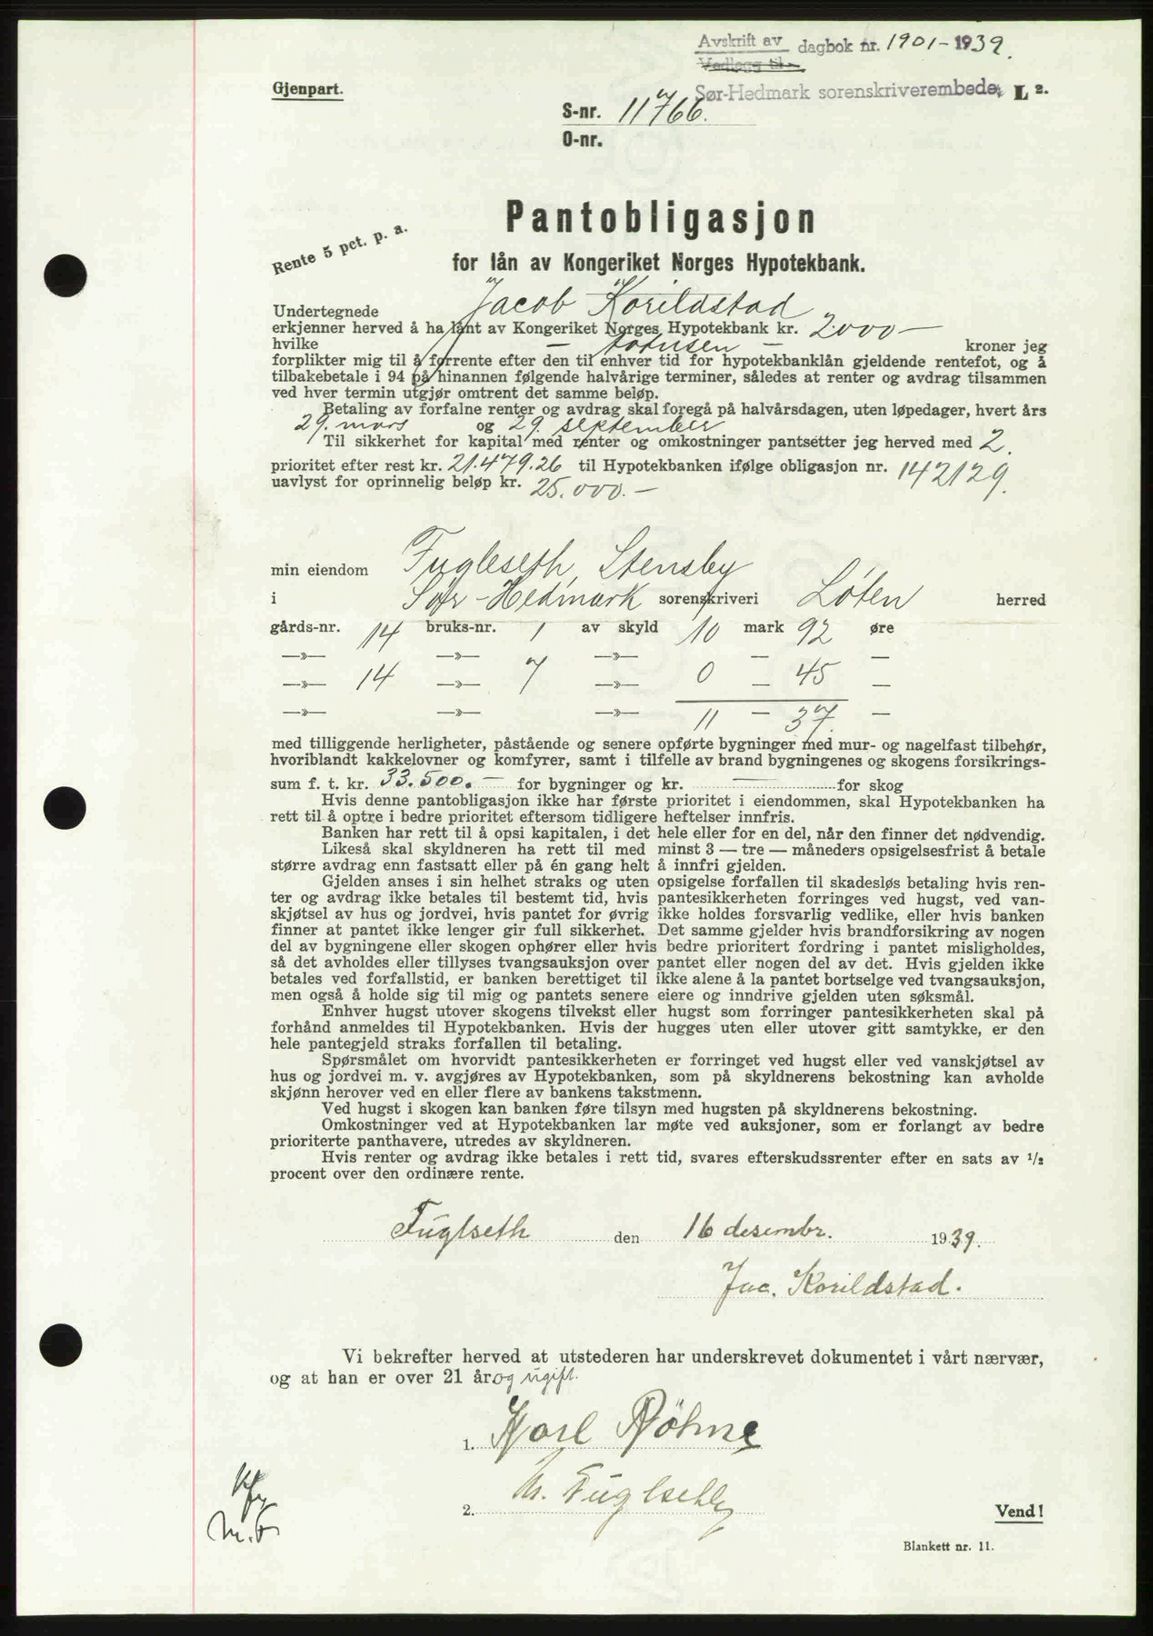 Avskrift av dagbok nr. 1901-1939.
Vedlegg til
Gjenpart.
Sør-Hedmark sorenskriverembede, L 2.
S-nr. 11766.
O-nr.
Pantobligasjon
Rente 5 pct. p. a.
for lån av Kongeriket Norges Hypotekbank.
Undertegnede Jacob Korildstad
erkjenner herved å ha lånt av Kongeriket Norges Hypotekbank kr. 2000 —
hvilke — totusen — kroner jeg
forplikter mig til å forrente efter den til enhver tid for hypotekbanklån gjeldende rentefot, og å
tilbakebetale i 94 på hinannen følgende halvårige terminer, således at renter og avdrag tilsammen
ved hver termin utgjør omtrent det samme beløp.
Betaling av forfalne renter og avdrag skal foregå på halvårsdagen, uten løpedager, hvert års
29. mars og 29. september
Til sikkerhet for kapital med renter og omkostninger pantsetter jeg herved med 2.
prioritet efter rest kr. 21.479.26 til Hypotekbanken ifølge obligasjon nr. 142129.
uavlyst for oprinnelig beløp kr. 25.000.—
min eiendom Fugleseth, Stensby
i Sør-Hedmark sorenskriveri Løten herred
gårds-nr. 14 bruks-nr. 1 av skyld 10 mark 92 øre
—»— —»— —»— — —
—»— 14 —»— 7 —»— 0 — 45 —
—»— —»— —»— 11 — 37. —
med tilliggende herligheter, påstående og senere opførte bygninger med mur- og nagelfast tilbehør,
hvoriblandt kakkelovner og komfyrer, samt i tilfelle av brand bygningenes og skogens forsikrings-
sum f. t. kr. 33.500.— for bygninger og kr. — for skog
Hvis denne pantobligasjon ikke har første prioritet i eiendommen, skal Hypotekbanken ha
rett til å optre i bedre prioritet eftersom tidligere heftelser innfris.
Banken har rett til å opsi kapitalen, i det hele eller for en del, når den finner det nødvendig.
Likeså skal skyldneren ha rett til med minst 3 — tre — måneders opsigelsesfrist å betale
større avdrag enn fastsatt eller på én gang helt å innfri gjelden.
Gjelden anses i sin helhet straks og uten opsigelse forfallen til skadesløs betaling hvis ren-
ter og avdrag ikke betales til bestemt tid, hvis pantesikkerheten forringes ved hugst, ved van-
skjøtsel av hus og jordvei, hvis pantet for øvrig ikke holdes forsvarlig vedlike, eller hvis banken
finner at pantet ikke lenger gir full sikkerhet. Det samme gjelder hvis brandforsikring av nogen
del av bygningene eller skogen ophører eller hvis bedre prioritert fordring i pantet misligholdes,
så det avholdes eller tillyses tvangsauksjon over pantet eller nogen del av det. Hvis gjelden ikke
betales ved forfallstid, er banken berettiget til ikke alene å la pantet bortselge ved tvangsauksjon,
men også å holde sig til mig og pantets senere eiere og inndrive gjelden uten søksmål.
Enhver hugst utover skogens tilvekst eller hugst som forringer pantesikkerheten skal på
forhånd anmeldes til Hypotekbanken. Hvis der hugges uten eller utover gitt samtykke, er den
hele pantegjeld straks forfallen til betaling.
Spørsmålet om hvorvidt pantesikkerheten er forringet ved hugst eller ved vanskjøtsel av
hus og jordvei m. v. avgjøres av Hypotekbanken, som på skyldnerens bekostning kan avholde
skjønn herover ved en eller flere av bankens takstmenn.
Ved hugst i skogen kan banken føre tilsyn med hugsten på skyldnerens bekostning.
Omkostninger ved at Hypotekbanken lar møte ved auksjoner, som er forlangt av bedre
prioriterte panthavere, utredes av skyldneren.
Hvis renter og avdrag ikke betales i rett tid, svares efterskudssrenter efter en sats av 1/2
procent over den ordinære rente.
Fuglseth den 16 desembr. 1939.
Jac. Korildstad.
Vi bekrefter herved at utstederen har underskrevet dokumentet i vårt nærvær,
og at han er over 21 år og ugift.
1. Karl Röhne
2. M. Fuglseth
Vend!
Blankett nr. 11.